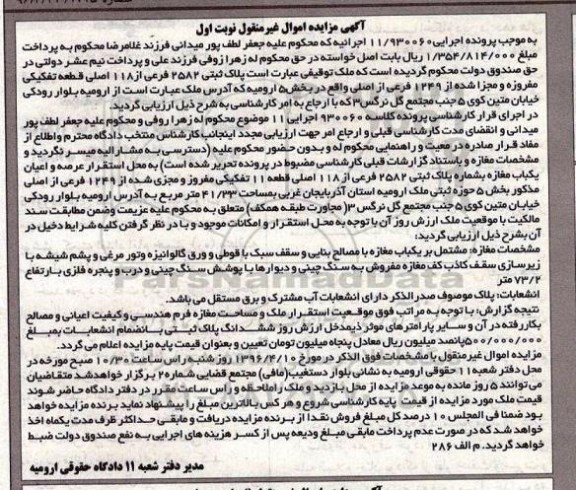 آگهی مزایده اموال غیرمنقول نوبت اول
به موجب پرونده اجرایی ۱۱/۹۳۰۰۶۰ اجرائیه که محکوم علیه جعفر لطف پور میدانی فرزند غلامرضا محکوم به پرداخت
مبلغ ۱/۳۵۴/۸۱۴/۰۰۰ ریال بابت اصل خواسته در حق محکوم له زهرا زوفی فرزند علی و پرداخت نیم عشر دولتی در
حق صندوق دولت محکوم گردیده است که ملک توقیفی عبارت است پلاک ثبتی ۲۵۸۲ فرعی از ۱۱۸ اصلی قطعه تفکیکی
مفروزه و مجزا شده از ۱۲۴۹ فرعی از اصلی واقع در بخش ۵ ارومیه که آدرس ملک عبارت است از ارومیه بلوار رودکی
خیابان متین کوی ۵ جنب مجتمع گل نرگس ۳ که با ارجاع به امر کارشناسی به شرح ذیل ارزیابی گردید.
در اجرای قرار کارشناسی پرونده کلاسه ۹۳۰۰۶۰ اجرایی ۱۱ موضوع محکوم له زهرا روفی و محکوم علیه جعفر لطف پور
میدانی و انقضای مدت کارشناسی قبلی و ارجاع امر جهت ارزیابی مجدد اینجانب کارشناس منتخب دادگاه محترم واطلاع از
مفاد قرار صادره در معیت و راهنمایی محکوم له و بدون حضور محکوم علیه (دسترسی به مشارالیه میسر نگردید و
مشخصات مغازه و باستناد گزارشات قبلی کارشناسی مضبوط در پرونده تحریر شده است) به محل استقرار عرصه و اعیان
یکباب مغازه بشماره پلاک ثبتی ۲۵۸۲ فرعی از ۱۱۸ اصلی قطعه ۱۱ تفکیکی مفروز و مجزی شده از ۱۲۴۹ فرعی از اصلی
مذکور بخش ۵ حوزه ثبتی ملک ارومیه استان آذربایجان غربی بمساحت ۴۱/۳۳ متر مربع به آدرس ارومیه بلوار رودکی
خیابان متین کوی ۵ جنب مجتمع گل نرگس ۳( مجاورت طبقه همکف) متعلق به محکوم علیه عزیمت وضمن مطابقت سند
مالکیت با موقعیت ملک ارزش روز آن با توجه به محل استقرار و امکانات موجود و با در نظر گرفتن کلیه شرایط دخیل در
آن بشرح ذیل ارزیابی گردید.
مشخصات مغازه: مشتمل بر یکباب مغازه با مصالح بنایی و سقف سبک با قوطی و ورق گالوانیزه وتور مرغی و پشم شیشه با
زیرسازی سقف کاذب کف مغازه مفروش به سنگ چینی و دیوارها با پوشش سنگ چینی و درب و پنجره فلزی با ارتفاع
۷۳/۲ متر
انشعابات: پلاک موصوف صدر الذکر دارای انشعابات آب مشترک و برق مستقل می باشد.
نتیجه گزارش: با توجه به مراتب فوق موقعیت استقرار ملک و مساحت مغازه فرم هندسی و کیفیت اعیانی و مصالح
بکاررفته در آن و سایر پارامترهای موثر ذیمدخل ارزش روز ششدانگ پلاک ثبتی بانضمام انشعابات بمبلغ
۵۰۰/۰۰۰/۰۰۰ پانصد میلیون ریال معادل پنجاه میلیون تومان تعیین و بعنوان قیمت پایه مزایده اعلام می گردد.
مزایده اموال غیر منقول با مشخصات فوق الذکر در مورخ ۱۳۹۶/۴/۱۰ روز شنبه راس ساعت ۱۰/۳۰ صبح مورخه در
محل دفتر شعبه ۱۱ حقوقی ارومیه به نشانی بلوار دستغیب(مافی) مجتمع قضایی شماره ۲ برگزار خواهدشد متقاضیان
می توانند ۵ روز مانده به موعد مزایده از محل بازدید و ملک راملاحظه وراس ساعت مقرر در دفتر دادگاه حاضر شوند
قیمت ملک مورد مزایده از قیمت پایه کارشناسی شروع و هر کس بالاترین مبلغ را پیشنهاد نماید برنده مزایده خواهد
بود ضمنا فی المجلس ۱۰ درصد کل مبلغ فروش نقدا از برنده مزایده دریافت و مابقی حداکثر ظرف مدت یکماه اخذ
خواهد شد که در صورت عدم پرداخت مابقی مبلغ ودیعه پس از کسر هزینه های اجرایی به نفع صندوق دولت ضبط
خواهد گردید. م الف ۲۸۶
مدیر دفتر شعبه ۱۱ دادگاه حقوقی ارومیه
ParsNamadData